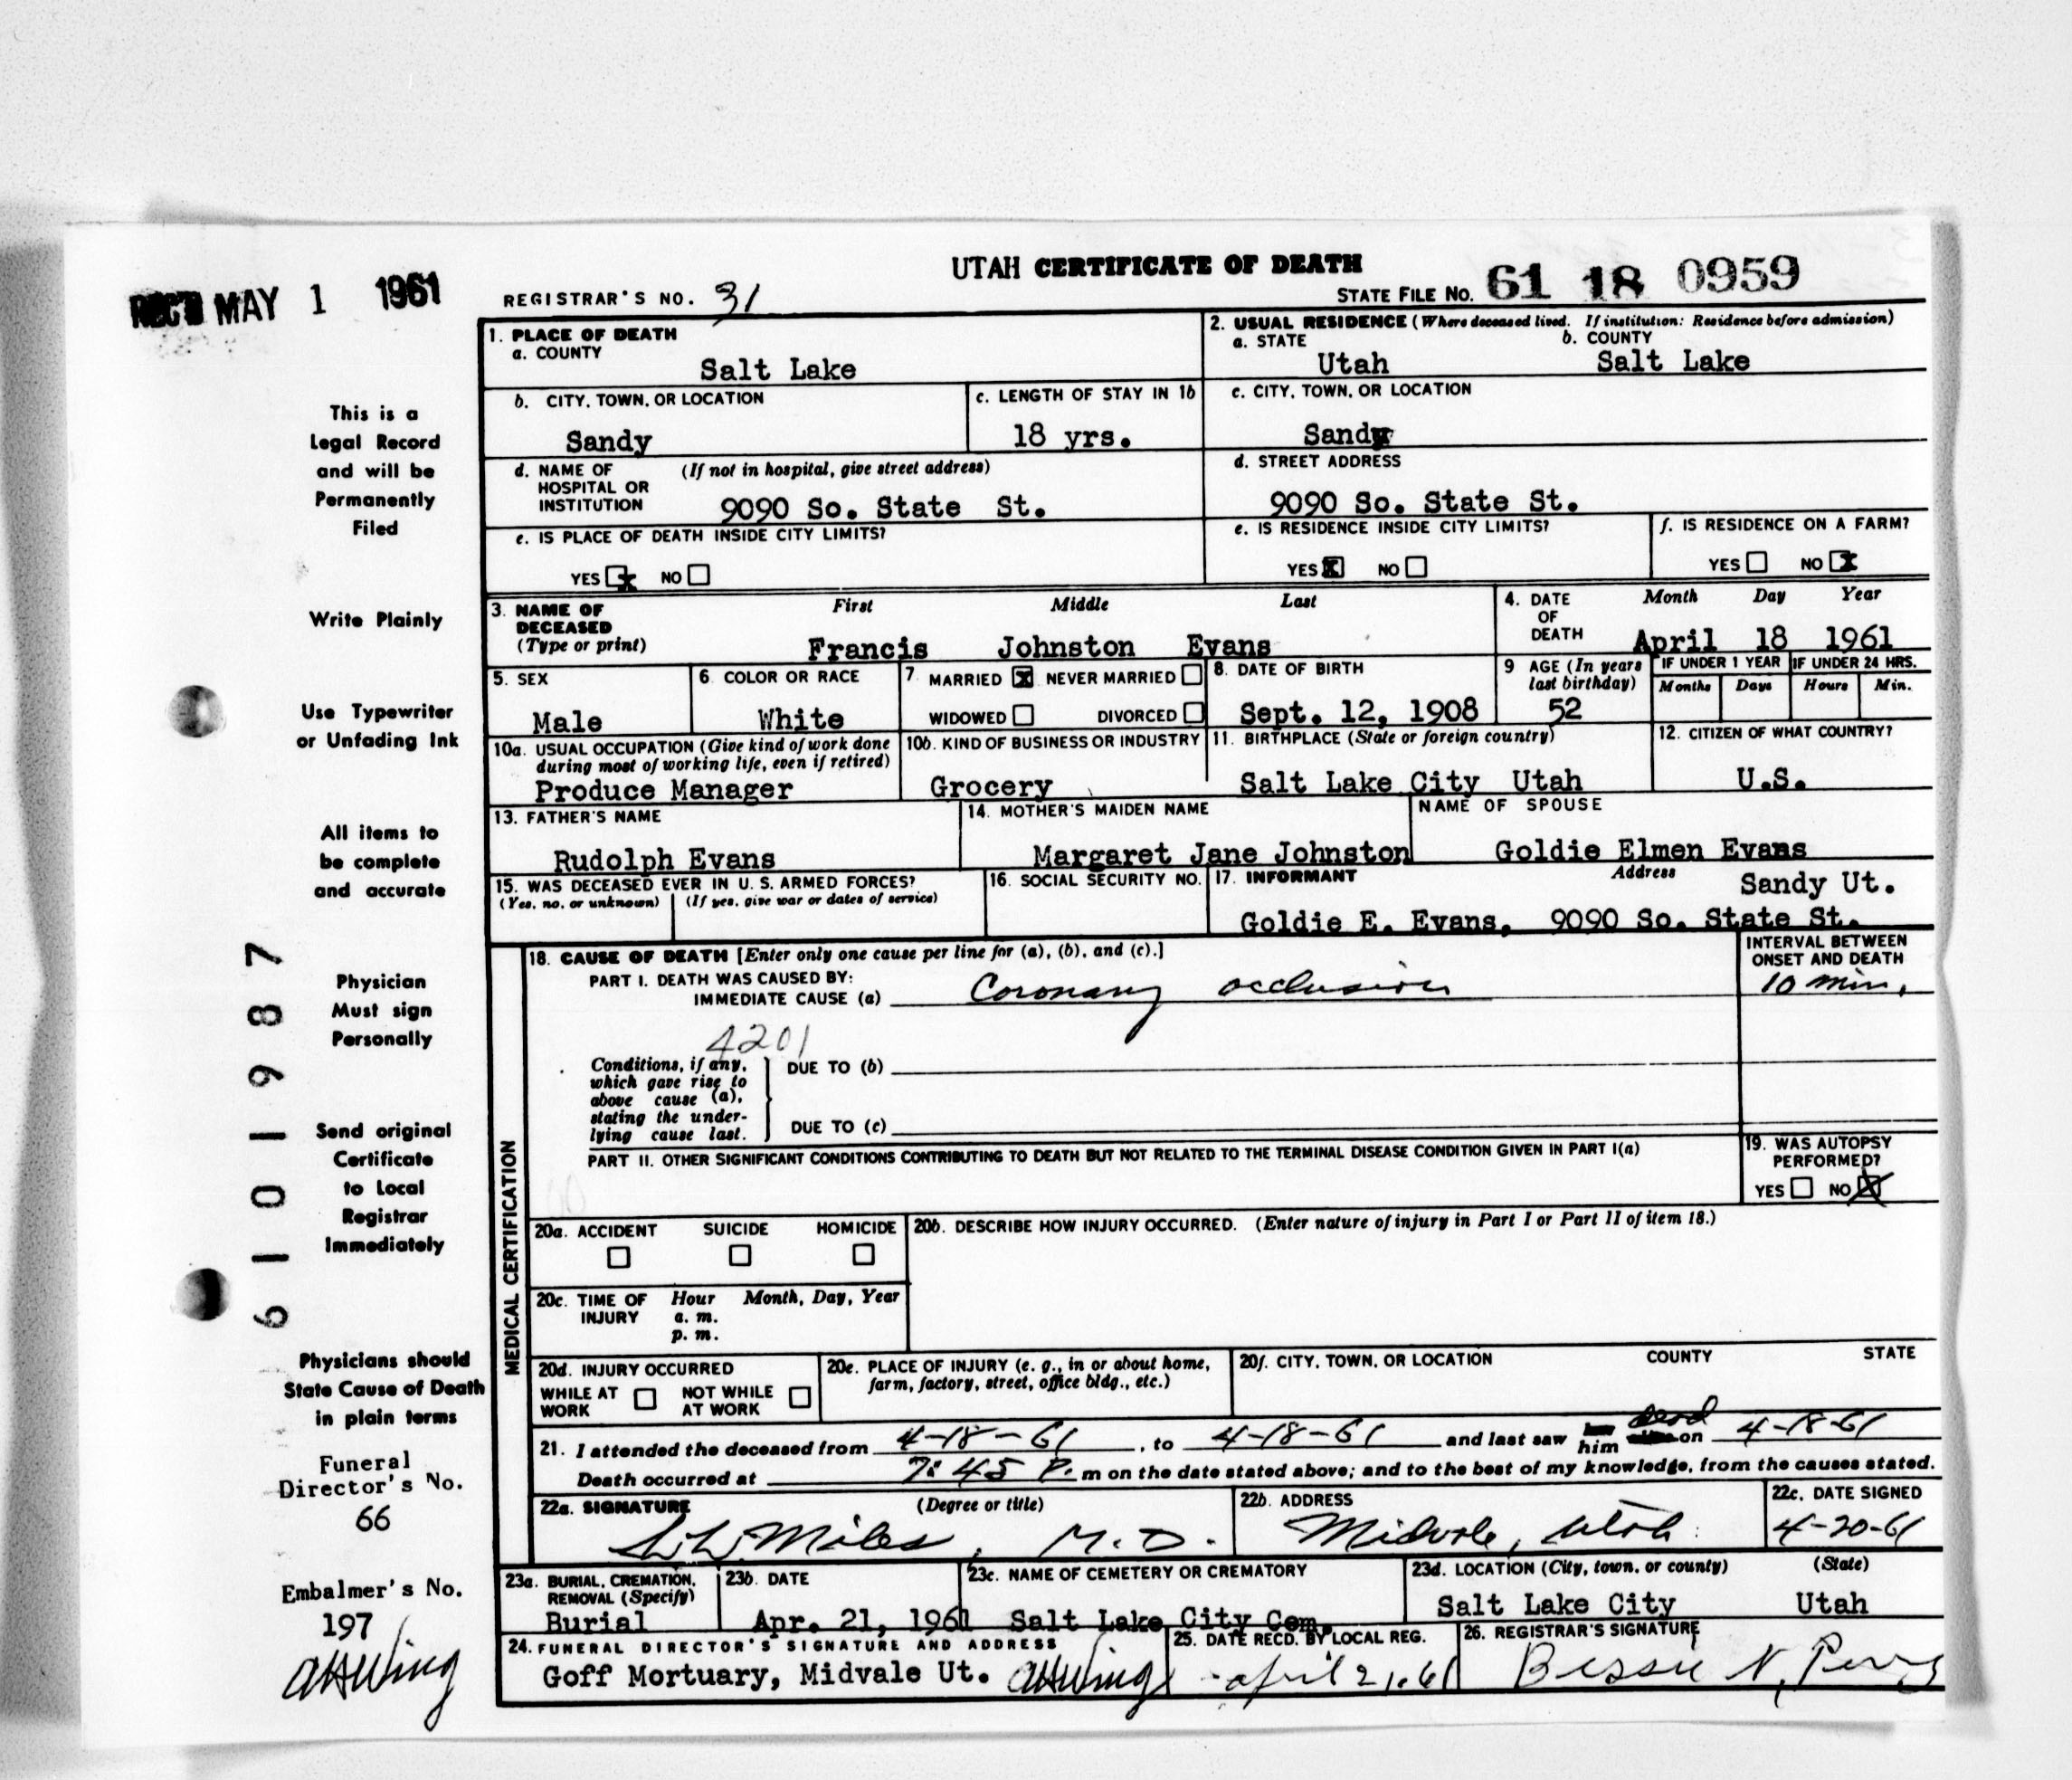 UTAH CERTIFICATE OF DEATH
REC'D MAY 1 1961
REGISTRAR'S NO. 31
STATE FILE NO. 61 18 0959
1. PLACE OF DEATH
a. COUNTY
Salt Lake
2. USUAL RESIDENCE (Where deceased lived. If institution: Residence before admission)
a. STATE
Utah
b. COUNTY
Salt Lake
b. CITY, TOWN, OR LOCATION
Sandy
c. LENGTH OF STAY IN 1b
18 yrs.
c. CITY, TOWN, OR LOCATION
Sandy
d. NAME OF HOSPITAL OR INSTITUTION
(If not in hospital, give street address)
9090 So. State St.
d. STREET ADDRESS
9090 So. State St.
e. IS PLACE OF DEATH INSIDE CITY LIMITS?
YES x NO
e. IS RESIDENCE INSIDE CITY LIMITS?
YES x NO
f. IS RESIDENCE ON A FARM?
YES NO x
3. NAME OF DECEASED
(Type or print)
First Middle Last
Francis Johnston Evans
4. DATE OF DEATH
Month Day Year
April 18 1961
5. SEX
Male
6. COLOR OR RACE
White
7. MARRIED x NEVER MARRIED
WIDOWED DIVORCED
8. DATE OF BIRTH
Sept. 12, 1908
9 AGE (In years last birthday)
52
IF UNDER 1 YEAR
Months Days
IF UNDER 24 HRS.
Hours Min.
10a. USUAL OCCUPATION (Give kind of work done during most of working life, even if retired)
Produce Manager
10b. KIND OF BUSINESS OR INDUSTRY
Grocery
11. BIRTHPLACE (State or foreign country)
Salt Lake City Utah
12. CITIZEN OF WHAT COUNTRY?
U.S.
13. FATHER'S NAME
Rudolph Evans
14. MOTHER'S MAIDEN NAME
Margaret Jane Johnston
NAME OF SPOUSE
Goldie Elmen Evans
15. WAS DECEASED EVER IN U. S. ARMED FORCES?
(Yes, no, or unknown) (If yes, give war or dates of service)
16. SOCIAL SECURITY NO.
17. INFORMANT Address
Sandy Ut.
Goldie E. Evans, 9090 So. State St.
MEDICAL CERTIFICATION
18. CAUSE OF DEATH [Enter only one cause per line for (a), (b), and (c).]
PART I. DEATH WAS CAUSED BY:
IMMEDIATE CAUSE (a) Coronary occlusion
INTERVAL BETWEEN ONSET AND DEATH
10 min.
4201
Conditions, if any, which gave rise to above cause (a), stating the underlying cause last.
DUE TO (b)
DUE TO (c)
PART II. OTHER SIGNIFICANT CONDITIONS CONTRIBUTING TO DEATH BUT NOT RELATED TO THE TERMINAL DISEASE CONDITION GIVEN IN PART I(a)
19. WAS AUTOPSY PERFORMED?
YES NO X
20a. ACCIDENT SUICIDE HOMICIDE
20b. DESCRIBE HOW INJURY OCCURRED. (Enter nature of injury in Part I or Part II of item 18.)
20c. TIME OF INJURY
Hour Month, Day, Year
a. m.
p. m.
20d. INJURY OCCURRED
WHILE AT WORK NOT WHILE AT WORK
20e. PLACE OF INJURY (e. g., in or about home, farm, factory, street, office bldg., etc.)
20f. CITY, TOWN, OR LOCATION COUNTY STATE
21. I attended the deceased from 4-18-61, to 4-18-61 and last saw him dead on 4-18-61
Death occurred at 7:45 P. m on the date stated above; and to the best of my knowledge, from the causes stated.
22a. SIGNATURE (Degree or title)
Miles, M.D.
22b. ADDRESS
Midvale, Utah
22c. DATE SIGNED
4-20-61
23a. BURIAL, CREMATION, REMOVAL (Specify)
Burial
23b. DATE
Apr. 21, 1961
23c. NAME OF CEMETERY OR CREMATORY
Salt Lake City Cem.
23d. LOCATION (City, town, or county) (State)
Salt Lake City Utah
24. FUNERAL DIRECTOR'S SIGNATURE AND ADDRESS
Goff Mortuary, Midvale Ut.
25. DATE RECD. BY LOCAL REG.
april 21, 61
26. REGISTRAR'S SIGNATURE
Bessie N. Perry
This is a
Legal Record
and will be
Permanently
Filed
Write Plainly
Use Typewriter
or Unfading Ink
All items to
be complete
and accurate
Physician
Must sign
Personally
Send original
Certificate
to Local
Registrar
Immediately
Physicians should
State Cause of Death
in plain terms
Funeral
Director's No.
66
Embalmer's No.
197
6101987